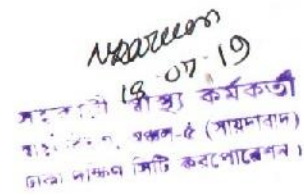 18-07-19
সহকারী স্বাস্থ্য কর্মকর্তা
অঞ্চল-৫ (সায়দাবাদ)
ঢাকা দক্ষিণ সিটি করপোরেশন।